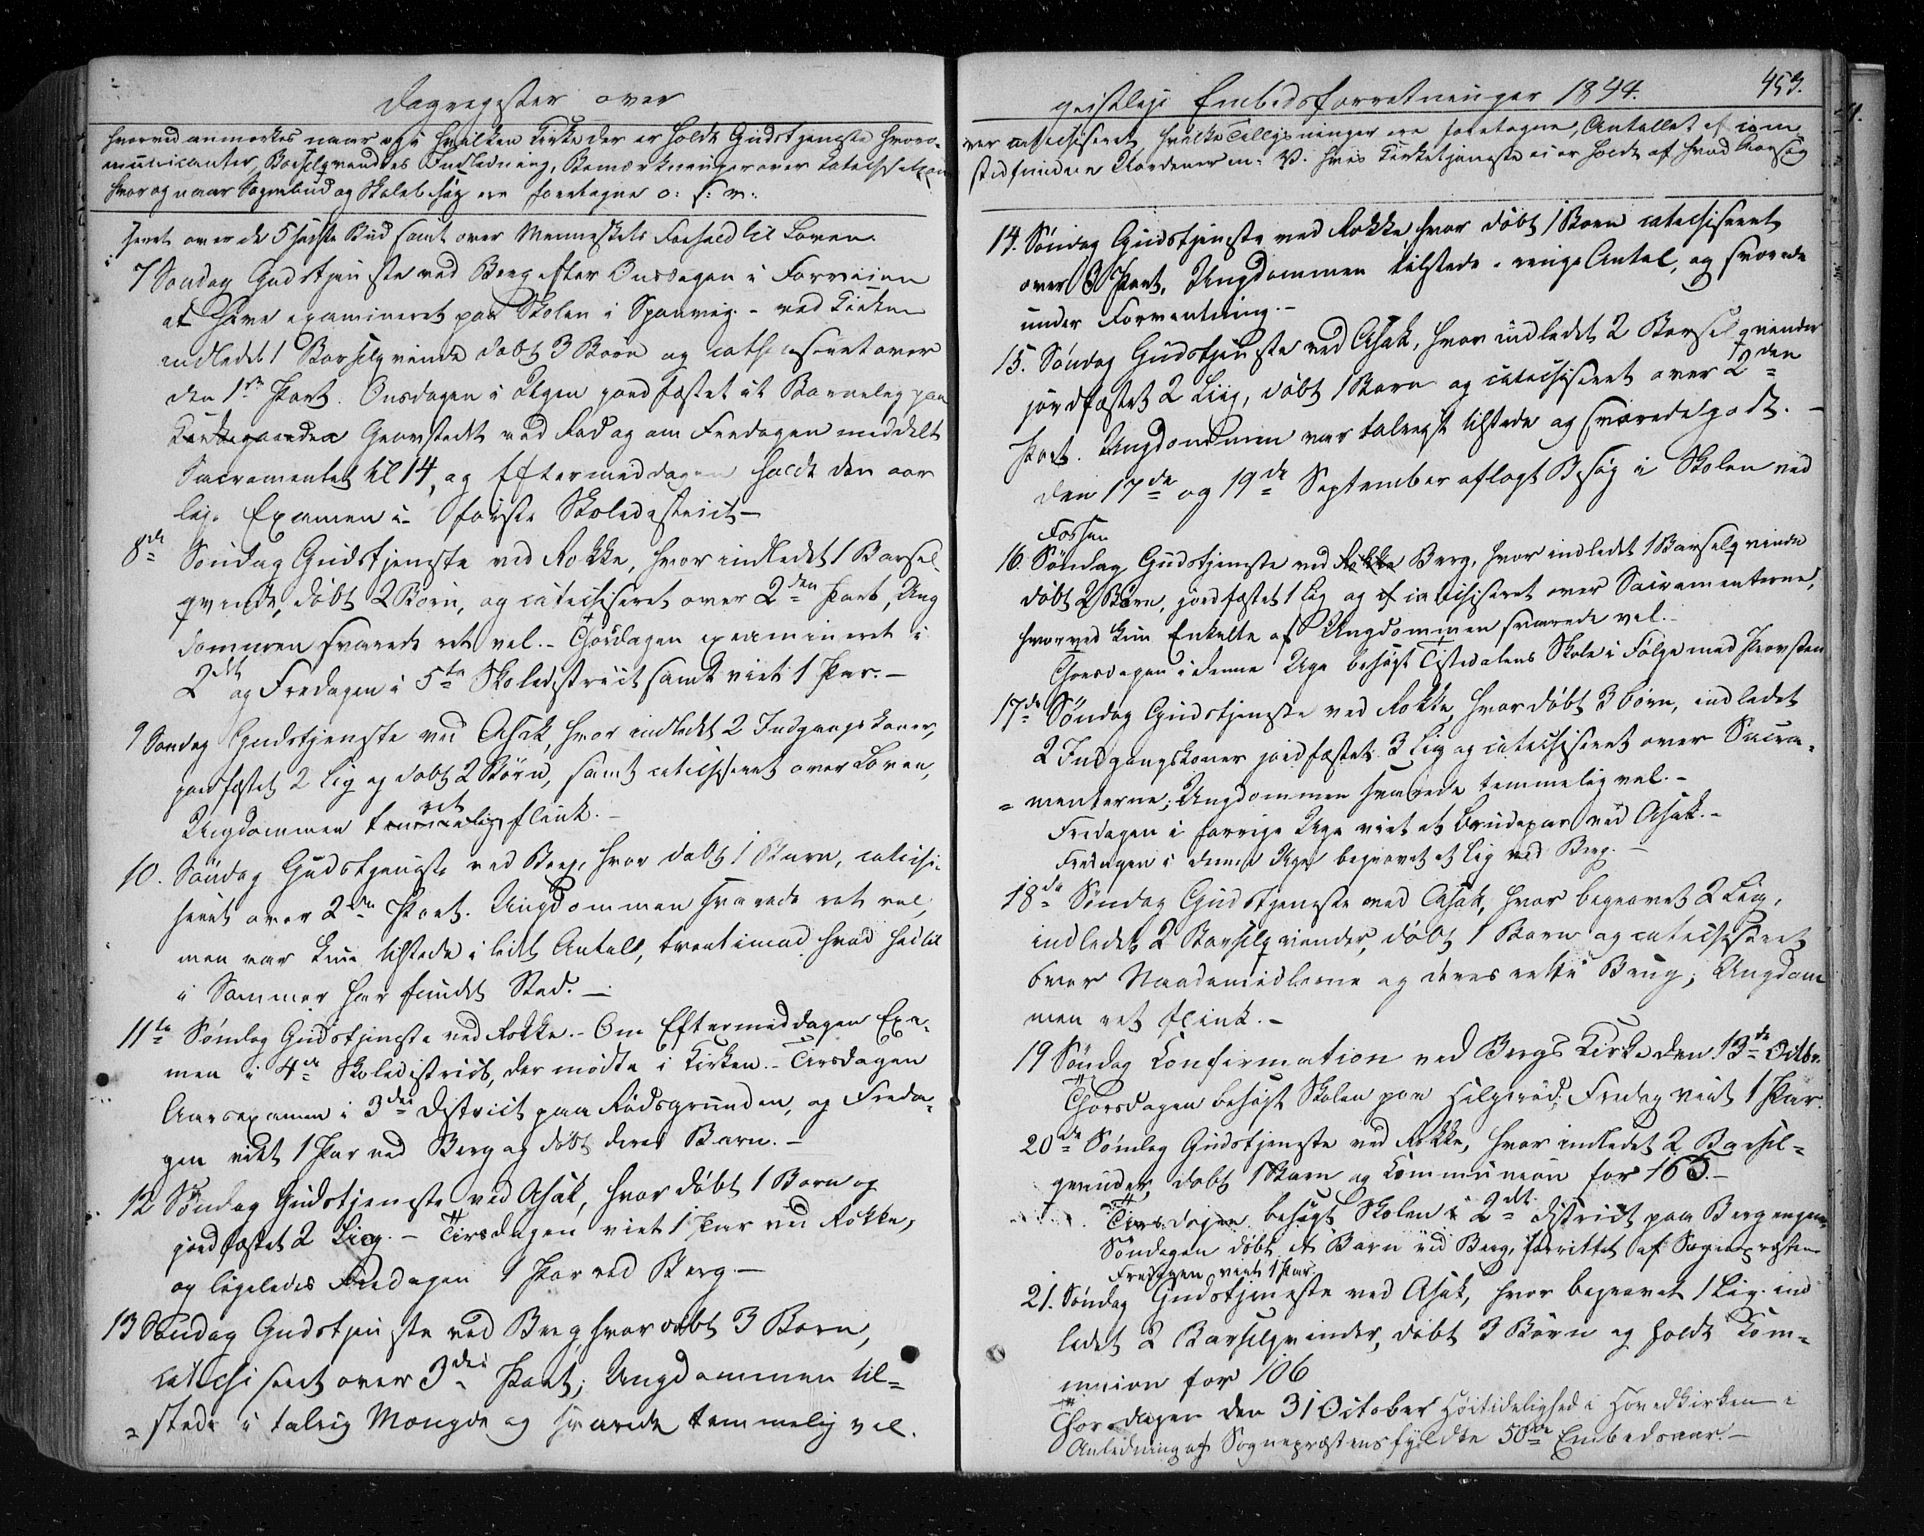 Dagregister over
hvorved anmærkes naar og i hvilken Kirke der er holdt Gudstjeneste hvor com-
municanter, Barselqvindes Indledning, Bemærkninger over Catechisation
hvor og naar Sognebud og Skolebesøg ere foretagne o: s: v:
seret over de 5 sidste Bud samt over Menneskets Forhold til Loven.
7 Søndag Gudstjeneste ved Berg efter Onsdagen i Forveien
at have examineret paa Skolen i Sponvig. - ved Kirken
indledet 1 Barselqvinde døbt 3 Børn og catheciseret over
den 1ste Part. Onsdagen i Ugen jordfæstet et Barnelig paa
Kirkegaarden Gravstedet ved Rød og om Fredagen meddelt
Sacramentet til 14, og Eftermiddagen holdt den aar
lige Examen i første Skoledistrict -
8de Søndag Gudstjeneste ved Rokke, hvor indledet 1 Barsel
qvinde, døbt 2 Børn, og catechiseret over 2den Part, Ung
dommen svarede ret vel. - Thorsdagen examineret i
2det og Fredagen i 5te Skoledistrict samt viet 1 Par. -
9 Søndag Gudstjeneste ved Asak, hvor indledet 2 Indgangskoner,
jordfæstet 2 Lig og døbt 2 Børn, samt catechiseret over Loven,
ret
Ungdommen temmelig flink. -
10. Søndag Gudstjeneste ved Berg, hvor døbt 1 Barn, catechi-
seret over 2den Part. Ungdommen svarede ret vel,
men var kun tilstede i lidet Antall, tvertimod hvad hidtil
i Sommer har fundet Sted. -
11te Søndag Gudstjeneste ved Rokke. - Om Eftermiddagen Exa-
men i 4de Skoledistrict, der mødte i Kirken. - Tirsdagen
Aarsexamen i 3die District paa Rødsgrunden, og Freda-
gen viet 1 Par ved Berg og døbt deres Barn. -
12 Søndag Gudstjeneste ved Asak, hvor døbt 1 Barn og
jordfæstet 2 Liig. - Tirsdagen viet 1 Par ved Rokke,
og ligeledes Fredagen 1 Par ved Berg. -
13 Søndag Gudstjeneste ved Berg, hvor døbt 3 Børn,
catechiseret over 3die Part; Ungdommen til-
stede i talrig Mængde og svarede temmelig vel.
geistlige Embedsforretninger 1844.
453.
ver catechiseret, hvilke Vielser ere foretagne, Antallet af com
stedfundne Jordener m: V. hvis Kirketjeneste ei er holdt af hvad Aarsag
14. Søndag Gudstjeneste ved Rokke, hvor døbt 1 Barn catechiseret
over 3 Part. Ungdommen tilstede i ringe Antal, og svarede
under Forventning. -
15. Søndag Gudstjeneste ved Asak, hvor indledet 2 Barselqvinder
jordfæstet 2 Liig, døbt 1 Barn og catechiseret over 2den
Part. Ungdommen var talrigt tilstede og svarede godt. -
den 17de og 19de September aflagt Besøg i Skolen ved
Fossen
16. Søndag Gudstjeneste ved Rokke Berg, hvor indledet 1 Barselqvinde
døbt 2 Børn, jordfæstet 1 Lig og catechiseret over Sacramenterne,
hvorved kun Enkelte af Ungdommen svarede vel. -
Thorsdagen i denne Uge besøgt Tistedalens Skole i Følge med Provsten
17de Søndag Gudstjeneste ved Rokke, hvor døbt 3 Børn, indledet
2 Indgangskoner jordfæstet 3 Lig og catechiseret over Sacra-
menterne; Ungdommen svarede temmelig vel. -
Fredagen i forrige Uge viet et Brudepar ved Asak. -
Fredagen i denne Uge begravet et Lig ved Berg. -
18de Søndag Gudstjeneste ved Asak, hvor begravet 2 Liig,
indledet 2 Barselqvinder, døbt 1 Barn og catechiseret
over Naademidlerne og deres rette Brug; Ungdom
men ret flink. -
19 Søndag Confirmation ved Bergs Kirke den 13de Octbr.
Thorsdagen besøgt Skolen paa Hilgerød; Fredag viet 1 Par.
20de Søndag Gudstjeneste ved Rokke, hvor indledet 2 Barsel-
qvinder, døbt 1 Barn og Communion for 165. -
Tirsdagen besøgt Skolen i 2det District paa Bergengen
Søndagen døbt et Barn ved Berg, forrettet af Sognepræsten
Fredagen viet 1 Par.
21. Søndag Gudstjeneste ved Asak, hvor begravet 1 Lig ind
ledet 2 Barselqvinder, døbt 3 Børn og holdt Com-
munion for 106
Thorsdagen den 31 October Høitidelighed i Hovedkirken i
Anledning af Sognepræstens fyldte 50de Embedsaar. -